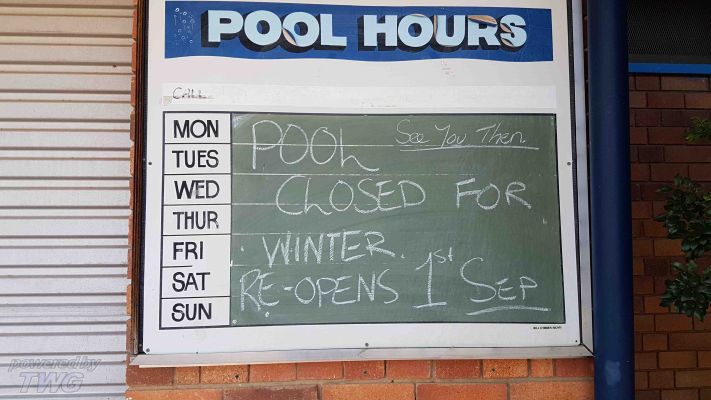 POOL HOURS
MON
TUES
WED
THUR
FRI
SAT
SUN
See You Then
POOL
CLOSED FOR
WINTER.
RE-OPENS 1st SEP
powered by
TWG